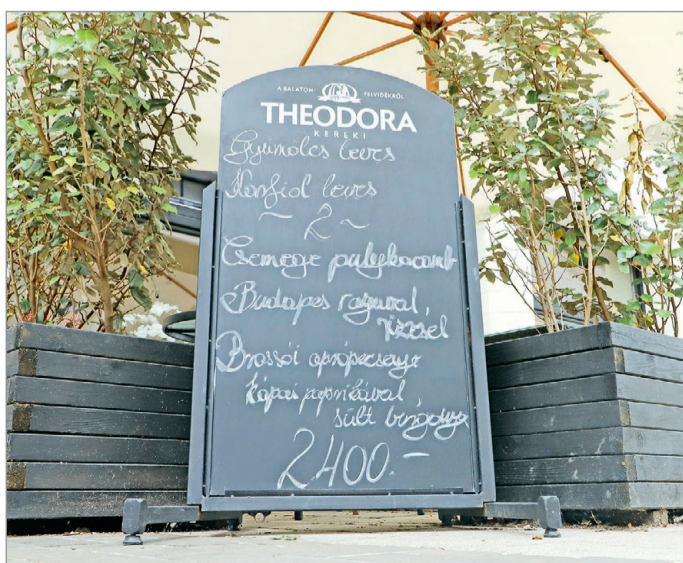 A BALATON FELVIDÉKRŐL
THEODORA
KÉKKÚTI
Gyümölcs leves
Karfiol leves
~ 2 ~
Csemege pulykacomb
Budapest raguval,
rizzsel
Brassói aprópecsenye
kápai paprikával,
sült burgonya
2400.-